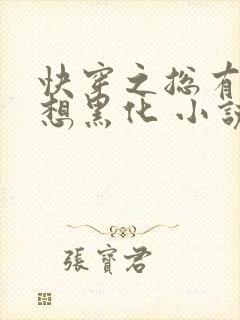 快穿之总有
想黑化 小說
張寶君